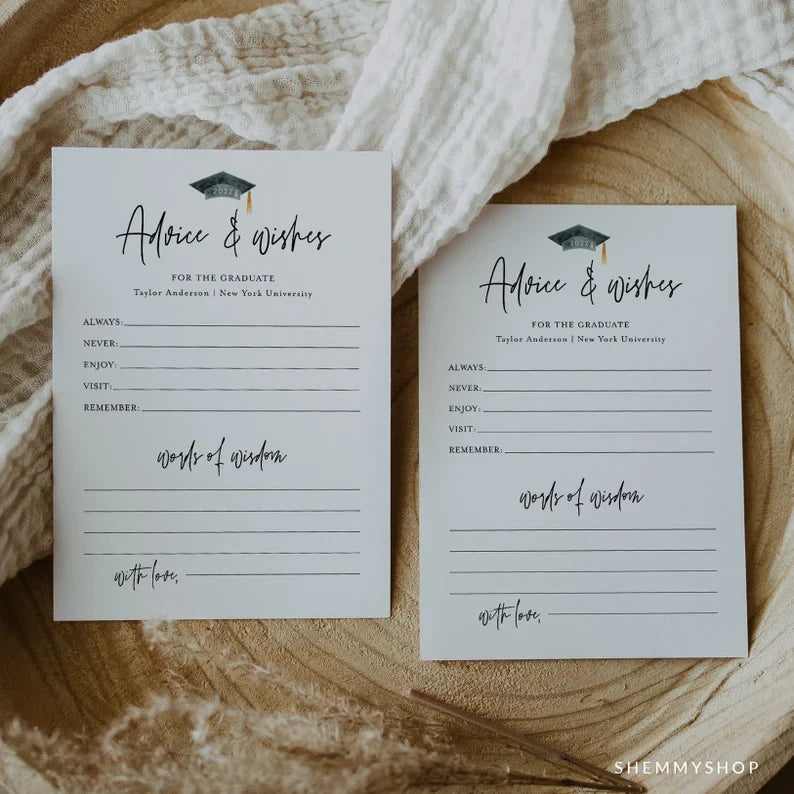 2022
Advice & wishes
FOR THE GRADUATE
Taylor Anderson | New York University
ALWAYS:
NEVER:
ENJOY:
VISIT:
REMEMBER:
words of wisdom
with love,
2022
Advice & wishes
FOR THE GRADUATE
Taylor Anderson | New York University
ALWAYS:
NEVER:
ENJOY:
VISIT:
REMEMBER:
words of wisdom
with love,
SHEMMYSHOP